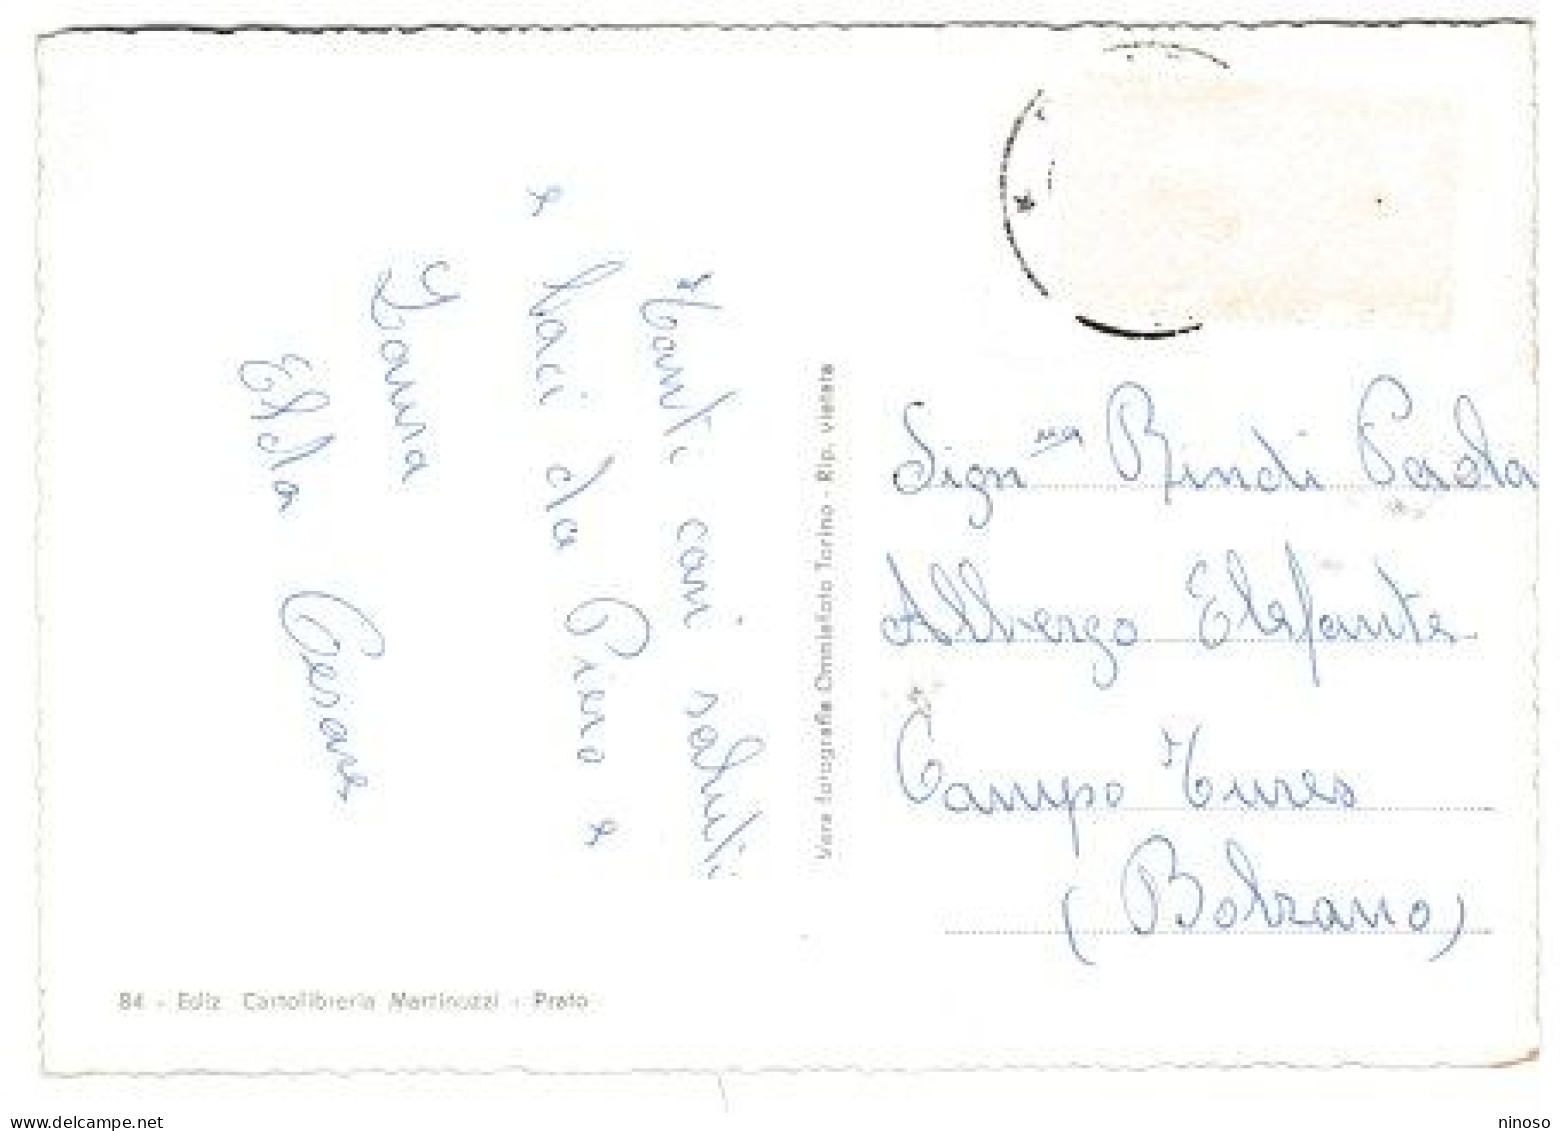 Tanti cari saluti
e baci da Piero e
Laura
Elda Cesare
Vera fotografia Omniafoto Torino - Rip. vietata
Sign.na Bindi Paola
Albergo Elefante
Campo Tures
(Bolzano)
84 - Ediz. Cartolibreria Martinuzzi - Prato
www.delcampe.net
ninoso